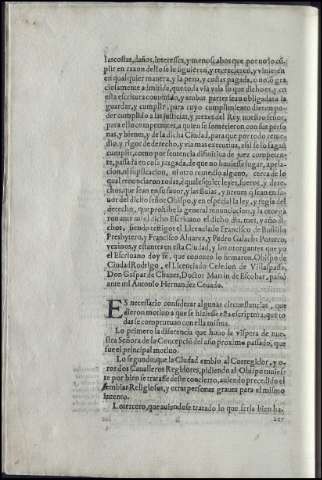 las costas, daños, interesses, y menoscabos que por no lo cũ-
plir en razon dello se le siguieren, y recrecieren, y viniere en
en qualquier manera, y la pena, y costas pagada, o no, o gra-
ciosamente remitida, que todavia vala lo que dicho es, y en
esta escritura contenido, y ambas partes sean obligadas a la
guardar, y cumplir, para cuyo cumplimiento dieron po-
der cumplido a las justicias, y juezes del Rey nuestro señor,
para ello competentes, a quien se sometieron con sus perso-
nas, y bienes, y de la dicha Ciudad, para que por todo remedio
y rigor de derecho, y via mas executiva, assi se lo hagan
cumplir, como por sentencia difinitiva de juez competente,
passada en cosa juzgada, de que no huviesse lugar, apela-
cion, ni suplicacion, ni otro remedio alguno, cerca de lo
qual renunciaron todas, y qualesquier leyes, fueros, y dere-
chos, que sean en su favor, y las suias, y
dor del dicho señor Obispo, y en especial la ley, y regla del
derecho, que prohibe la general renunciacion, y la otorga-
ron ante mi el dicho Escrivano el dicho dia, mes, y año di-
chos, siendo testigos el Licenciado Francisco de
Presbytero, y Francisco Alvarez, y Pedro Galache
vezinos, y estantes en esta Ciudad, y los otorgantes que yo
el Escrivano doy fè, que conozco lo firmaron. Obispo de
Ciudad Rodrigo, el Licenciado Celedon de Villalpasso,
Don Gaspar de Chaves, Doctor Martin de Escobar, passò
ante mi Antonio Hernandez Cosado.
ES necessario considerar algunas circunstancias, que
dieron motivo a que se hiziesse esta escriptura, que to-
das se comprueuan con ella misma.
Lo primero la diferencia que huuo la vispera de nues-
tra Señora de la Concepciõ del año proximo passado, que
fue el principal motiuo.
Lo segundo, que la Ciudad embiò al Corregidor, y o-
tros dos Caualleros Regidores, pidiendo al Obispo tuuiesse
por bien se tratasse deste concierto, auiendo precedido el
embiar Religiosos, y otras personas graues para el mismo
intento.
Lo tercero, que auiendose tratado lo que seria bien ha-